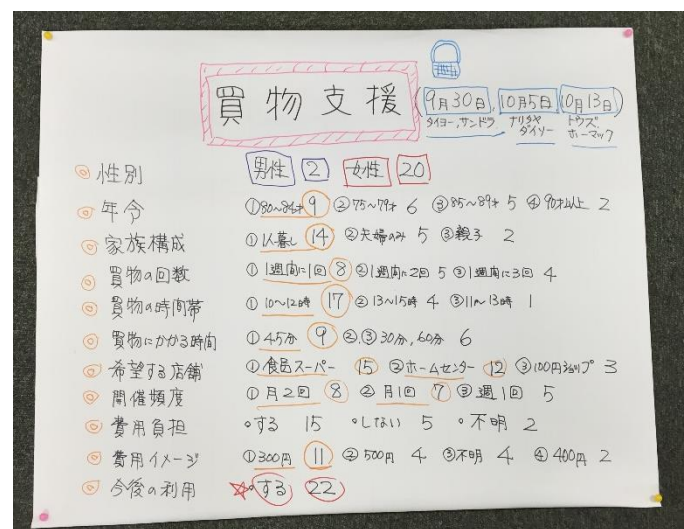 買物支援(9月30日,10月5日,10月13日)
タイヨー、サンドラ ナリタヤ ダイソー トウズ、ホーマック
◎性別 男性 2 女性 20
◎年令 ①80〜84才 9 ②75〜79才 6 ③85〜89才 5 ④90才以上 2
◎家族構成 ①1人暮し 14 ②夫婦のみ 5 ③親子 2
◎買物の回数 ①1週間に1回 8 ②1週間に2回 5 ③1週間に3回 4
◎買物の時間帯 ①10〜12時 17 ②13〜15時 4 ③11〜13時 1
◎買物にかかる時間 ①45分 9 ②,③30分,60分 6
◎希望する店舗 ①食品スーパー 15 ②ホームセンター 12 ③100円ショップ 3
◎開催頻度 ①月2回 8 ②月1回 7 ③週1回 5
◎費用負担 ◦する 15 ◦しない 5 ◦不明 2
◎費用イメージ ①300円 11 ②500円 4 ③不明 4 ④400円 2
◎今後の利用 ☆◦する 22